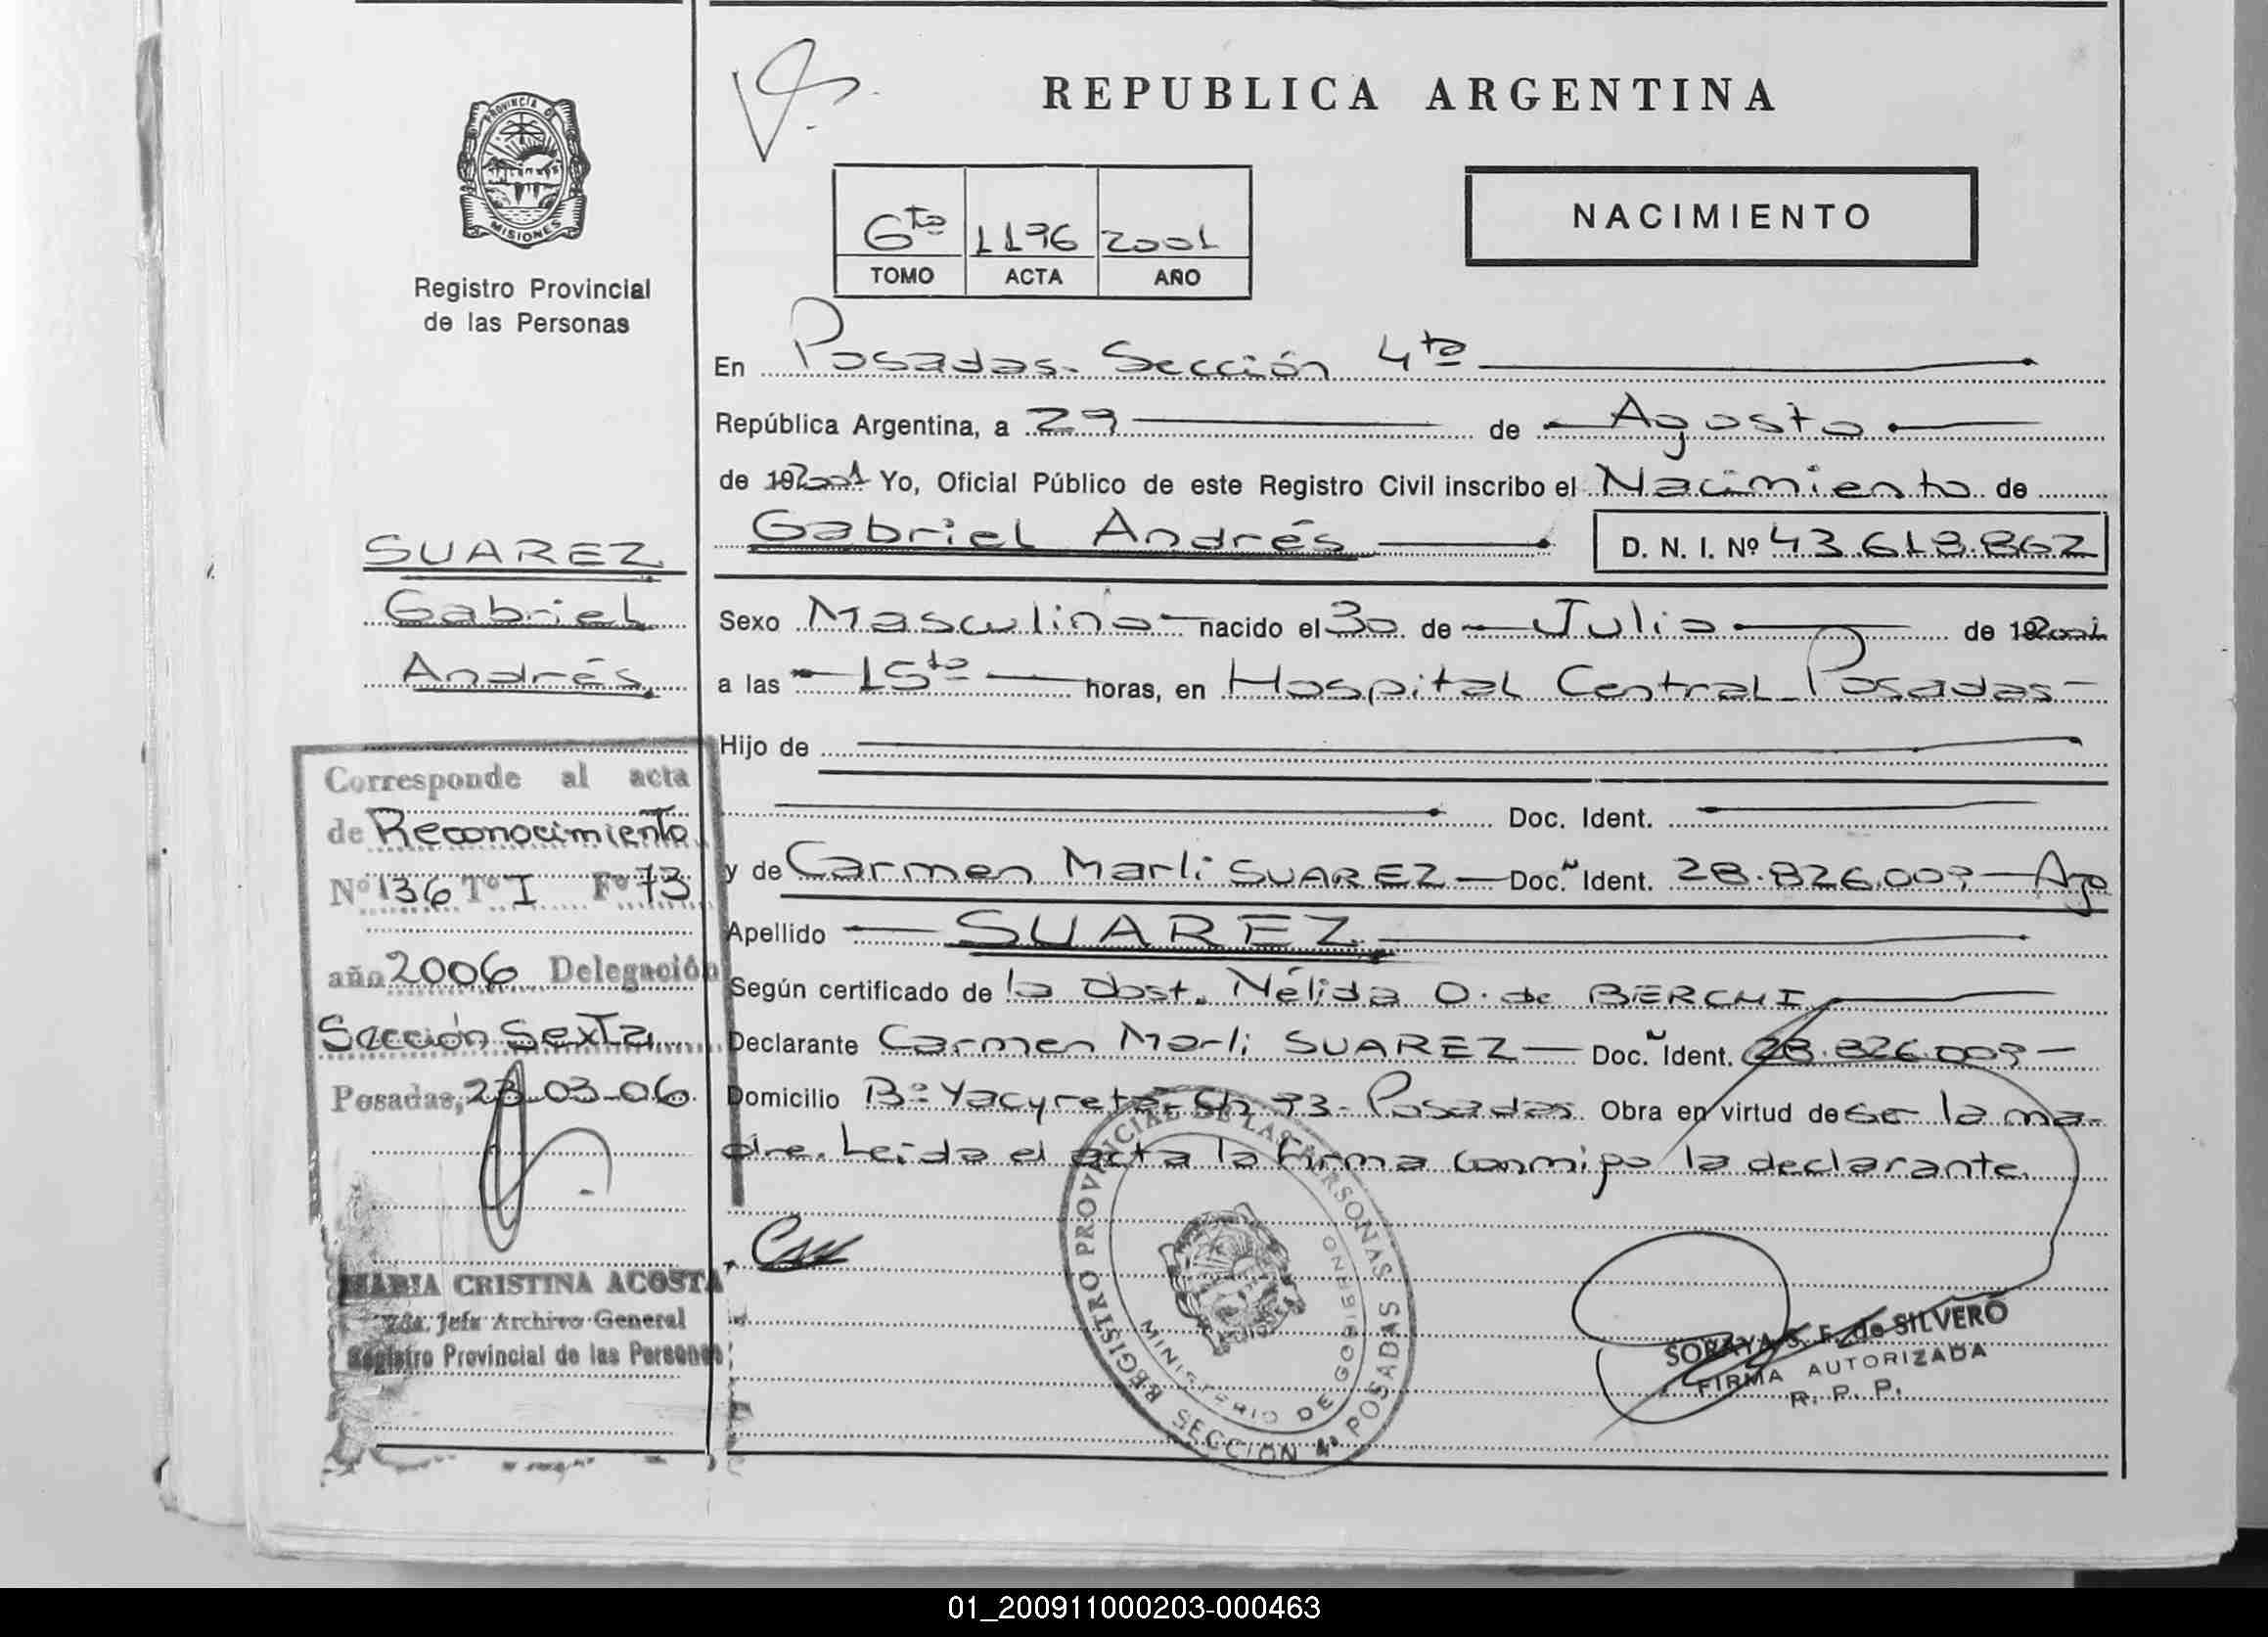 REPUBLICA ARGENTINA
PROVINCIA DE
MISIONES
Registro Provincial
de las Personas
6ta 1196 2001
TOMO ACTA AÑO
NACIMIENTO
En Posadas. Sección 4ta
República Argentina, a 29 de Agosto
de 192001 Yo, Oficial Público de este Registro Civil inscribo el Nacimiento de
Gabriel Andrés D. N. I. Nº 43.619.862
SUAREZ
Gabriel
Andrés.
Sexo Masculino nacido el 30 de Julio de 192001
a las 15to horas, en Hospital Central Posadas
Hijo de
Doc. Ident.
y de Carmen Marli SUAREZ Doc. Ident. 28.826.009 Arg
Apellido SUAREZ
Según certificado de la Obst. Nélida O. de BERCHI
Declarante Carmen Marli SUAREZ Doc. Ident. 28.826.009
Domicilio Bº Yacyretá Ch 93 Posadas Obra en virtud de ser la ma-
dre. Leída el acta la firma conmigo la declarante.
Corresponde al acta
de Reconocimiento
Nº 136 Tº I Fº 73
año 2006 Delegación
Sección Sexta
Posadas, 23-03-06
MARIA CRISTINA ACOSTA
Jefa Archivo General
Registro Provincial de las Personas
REGISTRO PROVINCIAL DE LAS PERSONAS
MINISTERIO DE GOBIERNO
SECCION 4ª POSADAS
SORAYA S. F. de SILVERO
FIRMA AUTORIZADA
R. P. P.
01_200911000203-000463